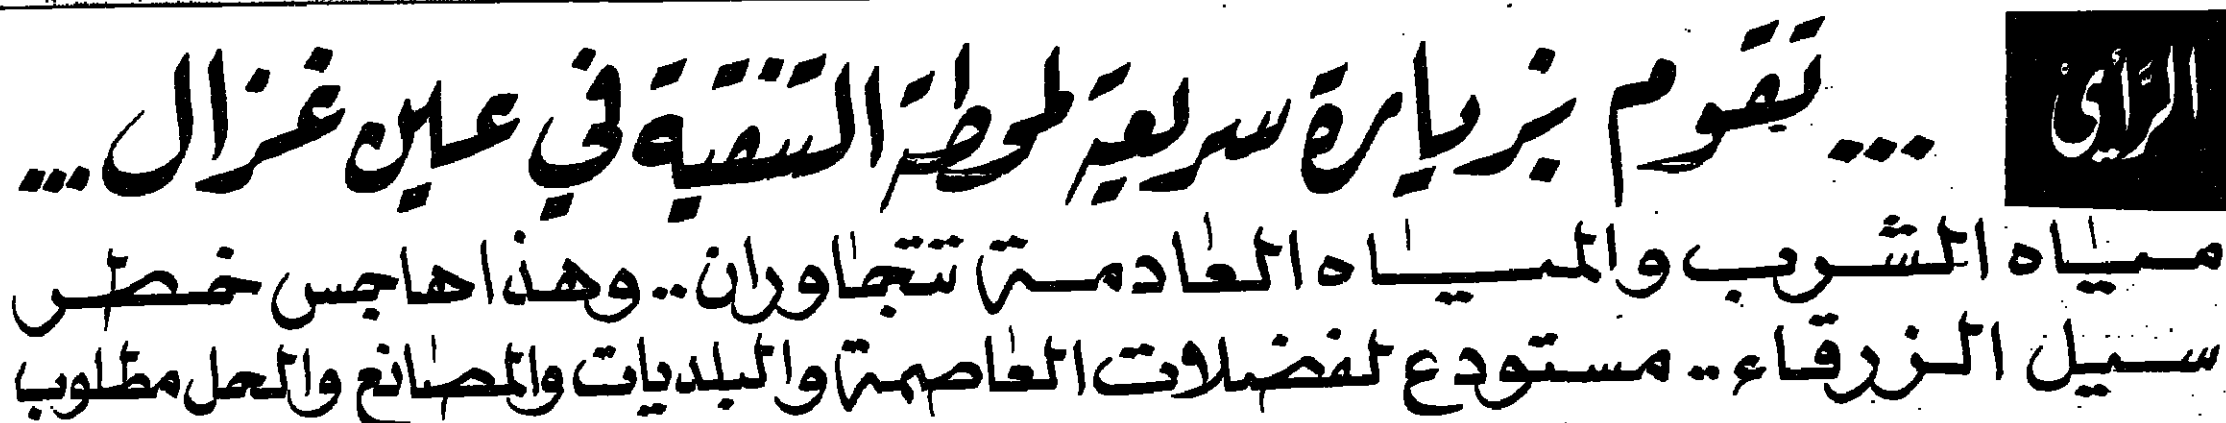 الرأي ... تقوم بزيارة سريعة لمحطة التنقية في عين غزال ...
مياه الشرب والمياه العادمة تتجاوران .. وهذا هاجس خطر
سيل الزرقاء .. مستودع لفضلات العاصمة والبلديات والمصانع والحل مطلوب